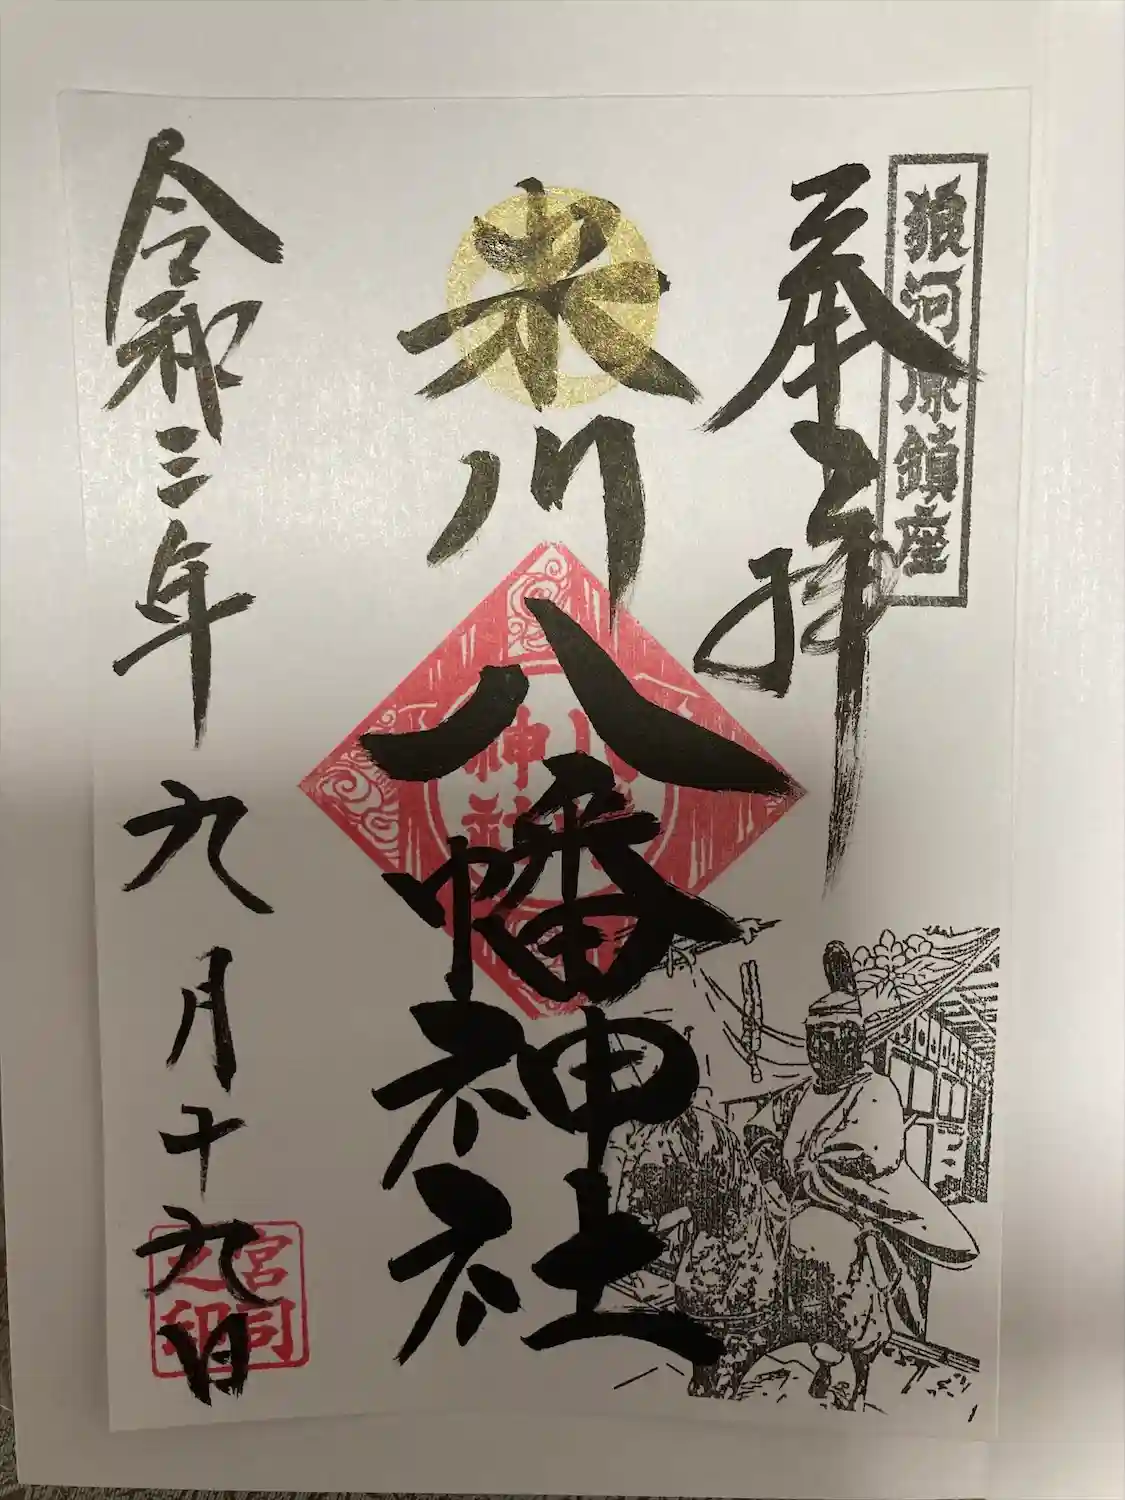 狼河原鎮座
奉拝
米川八幡神社
令和三年九月十九日
神社
宮司
之印